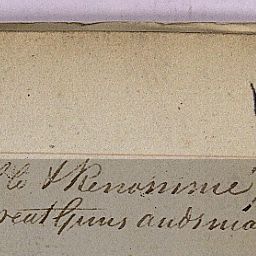 & Renommée
Great Guns and sma